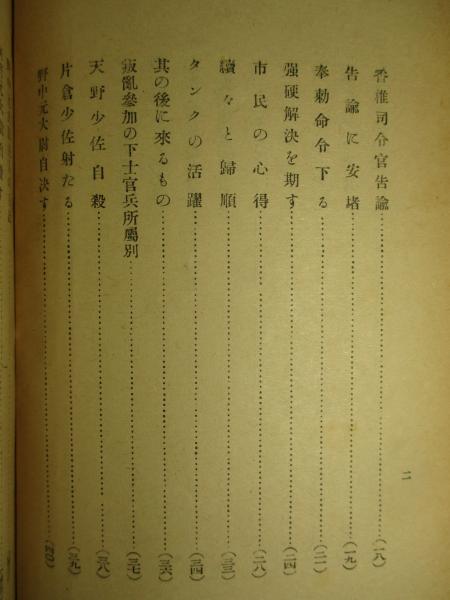 香椎司令官告諭……(一八)
告諭に安堵……(一九)
奉勅命令下る……(二一)
强硬解決を期す……(二四)
市民の心得……(二八)
續々と歸順……(三三)
タンクの活躍……(三四)
其の後に來るもの……(三六)
叛亂參加の下士官兵所屬別……(三七)
天野少佐自殺……(三八)
片倉少佐射たる……(三九)
野中元大尉自決す……(四〇)
二